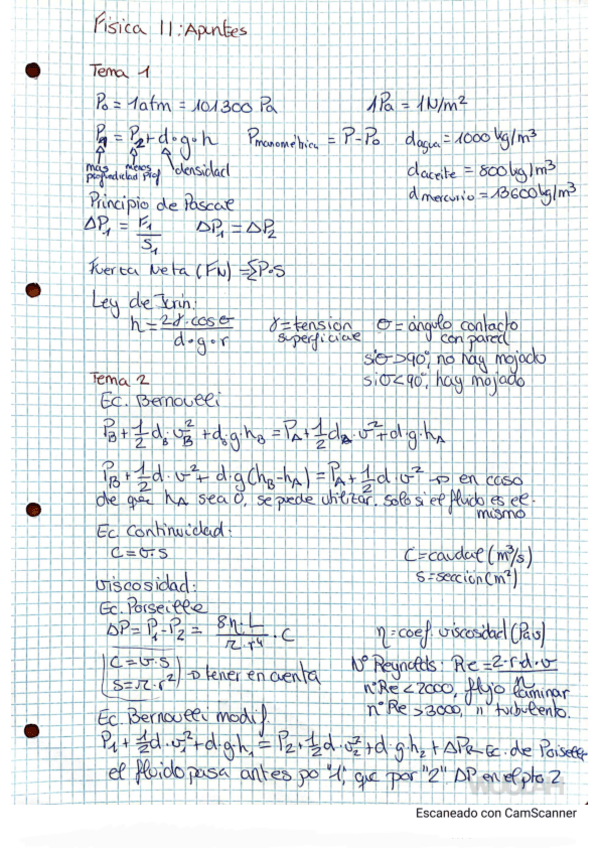 Física II: Apuntes
Tema 1
P₀ = 1atm = 101300 Pa 1Pa = 1N/m²
P₁ = P₂ + d·g·h Pmanométrica = P-P₀ dagua = 1000 kg/m³
más profundidad menos prof densidad daceite = 800 kg/m³
dmercurio = 13600 kg/m³
Principio de Pascal
ΔP₁ = F₁/S₁ ΔP₁ = ΔP₂
Fuerza Neta (FN) = ΣP·S
Ley de Jurin:
h = 2γ·cosσ / d·g·r γ = tensión superficial σ = ángulo contacto con pared
si σ > 90°, no hay mojado
si σ < 90°, hay mojado
Tema 2
Ec. Bernoulli
P_B + 1/2 d_B·v_B² + d_B·g·h_B = P_A + 1/2 d_A·v² + d·g·h_A
P_B + 1/2 d·v² + d·g(h_B-h_A) = P_A + 1/2 d·v² → en caso
de que h_A sea 0, se puede utilizar. Solo si el fluido es el
mismo
Ec Continuidad:
C = v·s C = caudal (m³/s)
s = sección (m²)
Viscosidad:
Ec. Poiseille
ΔP = P₁-P₂ = 8η·L / π·r⁴ · C η = coef. viscosidad (Pa·s)
C = v·s Nº Reynolds: Re = 2·r·d·v / η
S = π·r² → tener en cuenta nº Re < 2000, flujo laminar
nº Re > 3000, " turbulento.
Ec. Bernoulli modif.
P₁ + 1/2 d·v₁² + d·g·h₁ = P₂ + 1/2 d·v₂² + d·g·h₂ + ΔP ← Ec. de Poiseille
el fluido pasa antes po "1", que por "2" ΔP en el pto 2
WUOLAH
Escaneado con CamScanner